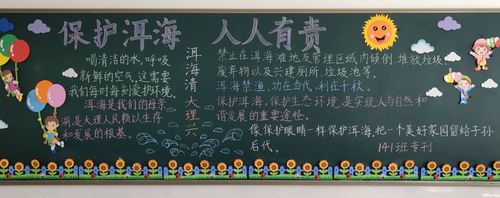 保护洱海 人人有责
喝清洁的水,呼吸
新鲜的空气,这需要
我们每时每刻爱护环境。
洱海是我们的母亲
湖,是大理人民赖以生存
和发展的根基。
洱海清 大理兴
禁止在洱海滩地及管理区域内倾倒、堆放垃圾、
废弃物以及兴建厕所、垃圾池等。
洱海禁渔,功在当代,利在千秋。
保护洱海,保护生态环境,是实现人与自然和
谐发展的重要途径。
像保护眼睛一样保护洱海,把一个美好家园留给子孙
后代。
141班专刊